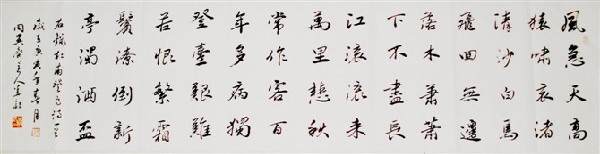 風急天高
猿嘯哀渚
清沙白鳥
飛回無邊
落木蕭蕭
下不盡長
江滾滾来
萬里悲秋
常作客百
年多病獨
登臺艱難
苦恨繁霜
鬢潦倒新
亭濁酒盃
杜甫登高詩一首